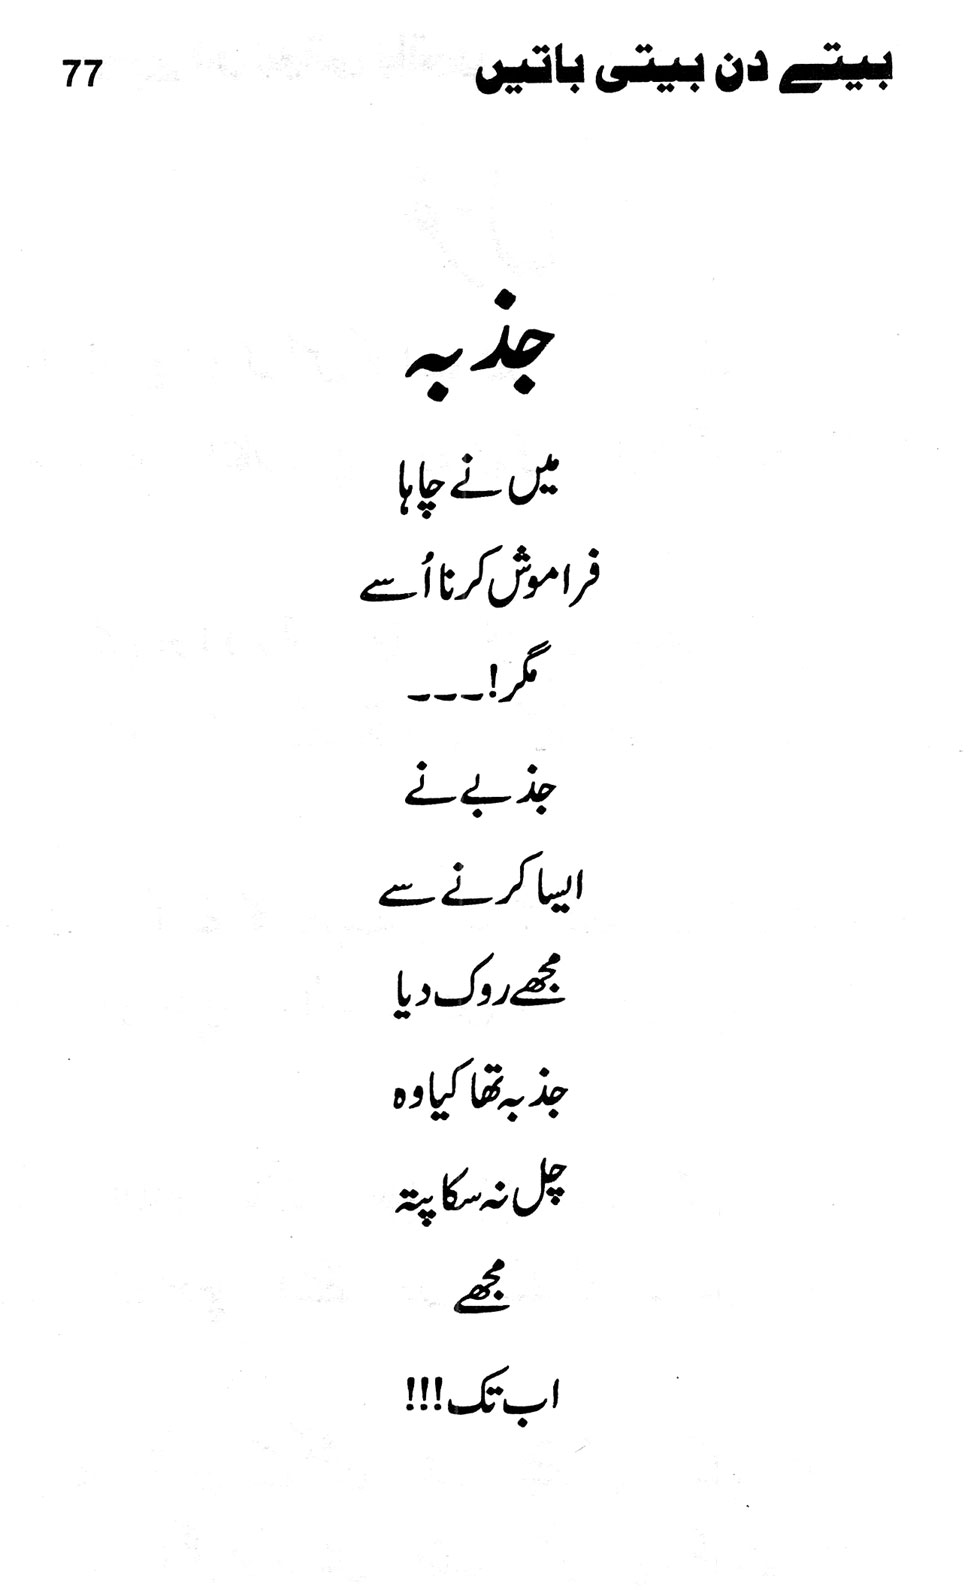 بیتے دن بیتی باتیں 77
جذبہ
میں نے چاہا
فراموش کرنا اُسے
مگر!۔۔۔
جذبے نے
ایسا کرنے سے
مجھے روک دیا
جذبہ تھا کیا وہ
چل نہ سکا پتہ
مجھے
اب تک!!!